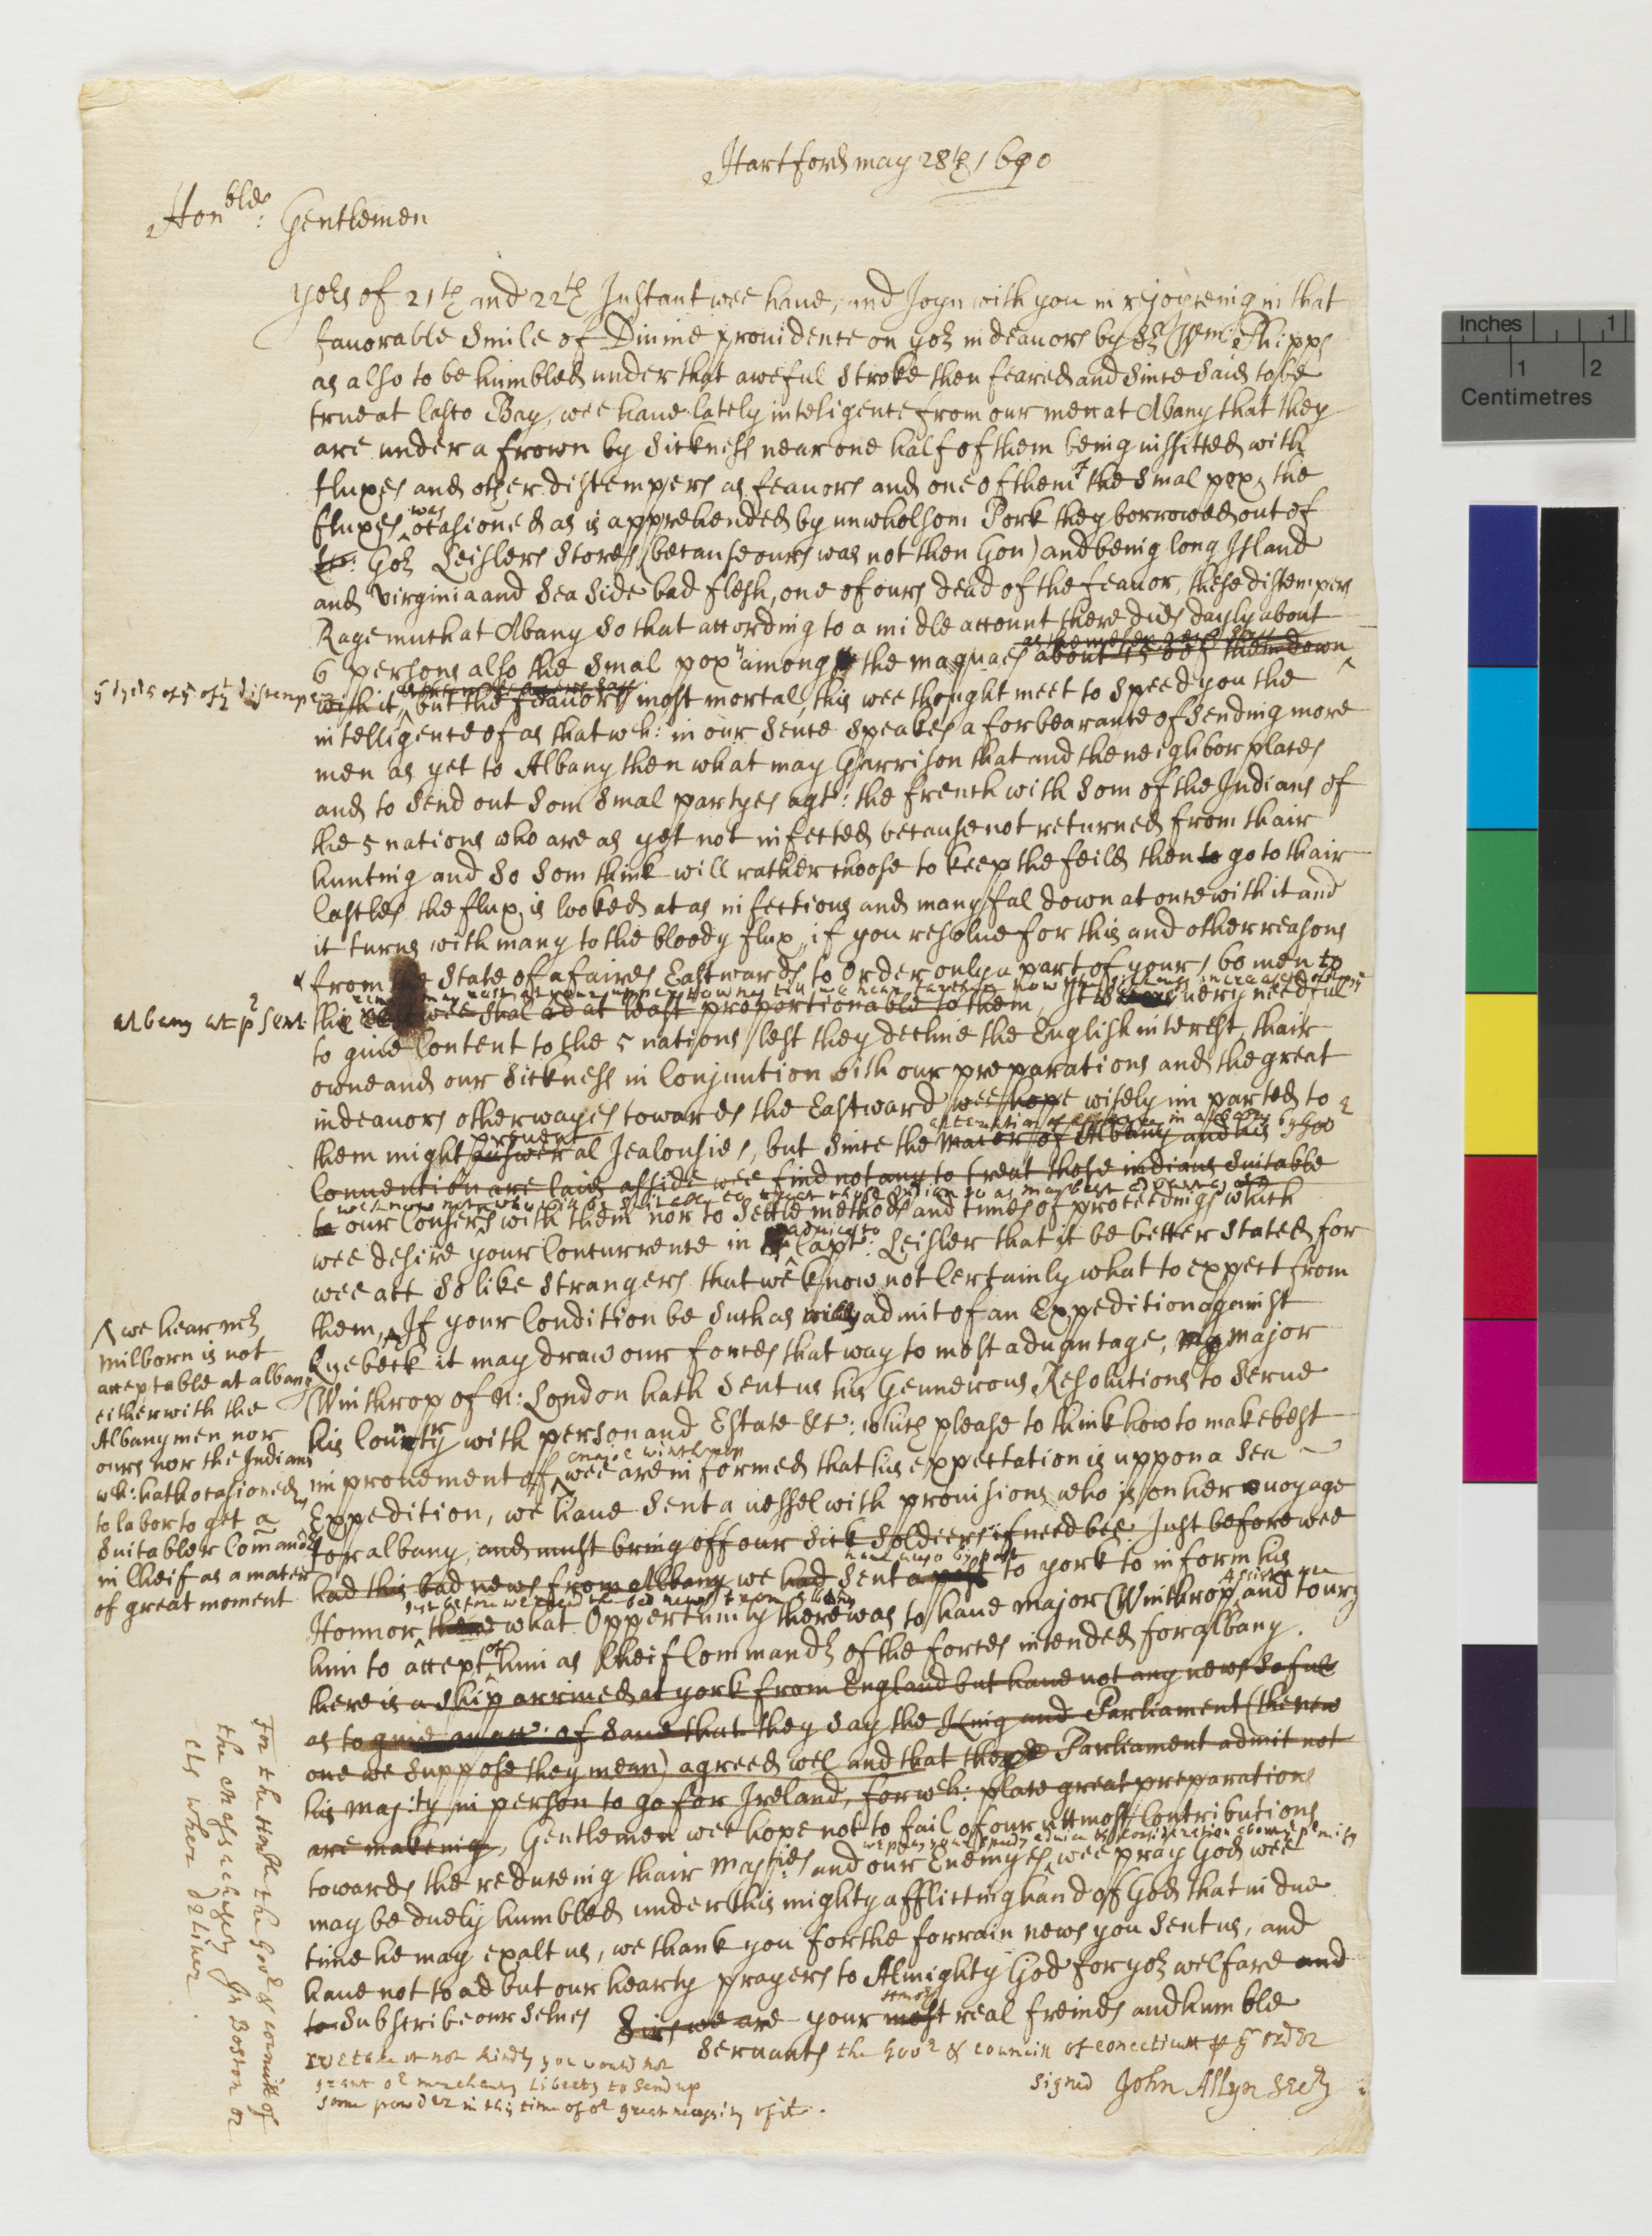 Hartford may 28th 1690
Honble: Gentlemen
yors of 21th and 22th Instant wee haue, and Joyn with you in rejoyceing in that
fauorable Smile of Diuine prouidence on yor indeauors by Sr Wm: Phipps
as also to be humbled under that aweful Stroke then feared and Since Said to be
true at Casco Bay, wee haue lately inteligence from our men at Abany that they
are under a frown by Sickness near one half of them being uissitted with
fluxes and other distempers as feauors and one of them the Smal pox, the
fluxes was ocasioned as is apprehended by unwholsom Pork they borrowed out of
Gor Leislers Stores (because ours was not then Gon) and being long Island
and Virginia and Sea Side bad flesh, one of ours dead of the feauor, these distempers
Rage much at Abany So that according to a midle account there dies dayly about
6 persons also the Smal pox among the maquaes about of them down
with it, but the feauors most mortal, this wee thought meet to Speed you the
intelligence of as that wch: in our Sence Speakes a forbearance of Sending more
men as yet to Albany then what may Garrison that and the neighbor places
and to Send out Som Smal partyes agt: the french with Som of the Indians of
the 5 nations who are as yet not infected because not returned from thair
hunting and So Som think will rather choose to keep the feild then to go to thair
Castles, the flux is looked at as infectious and many fal down at once with it and
it turns with many to the bloody flux, if you resolue for this and other reasons
from State of afaires Eastwards to order only a part of yours 60 men to
albany at pr sent
wee Shal ad at least proportionable to them, It is uery needful
to giue Content to the 5 nations lest they decline the English interest, thair
owne and our Sickness in Conjuntion with our preparations and the great
indeauors otherwayes towards the Eastward wee hope wisely imparted to
them might preuent answer al Jealousies, but Since the Maior of Albany and his
Conuention are laid asside wee find not any to treat those indians Suitable
to our Conserns with them nor to Settle methods and times of proceedings which
wee desire your Concurrence in Capt: Leisler that it be better Stated for
wee act So like Strangers that we know not Certainly what to expect from
them, If your Condition be Such as will admit of an Expedition against
Quebeck it may draw our forces that way to most aduantage, major
Winthrop of N: London hath Sent us his Gennerous Resolutions to Serue
his Country with person and Estate &c: which please to think how to make best
improuement of, major winthrop wee are informed that his expectation is uppon a Sea
Expedition, we haue Sent a uessel with prouisions who is on her uoyage
for albany, and must bring off our Sick Soldiers if need bee. Just before wee
had this bad news from Albany we had Sent a post to york to inform his
Honnor, there what Oppertunity there was to haue major Winthrop and to urg
him to accept of him as Cheif Commandr of the forces intended for albany.
there is a Ship arriued at york from England but haue not any news So full
as to giue an acc: of Saue that they Say the King and Parliament (the new
one we Suppose they mean) agreed wel and that the Parliament admit not
his Majsty in person to go for Ireland, for wch: place great preparations
are makeing, Gentlemen wee hope not to fail of our uttmost Contributions
towards the reduceing thair Majties and our Enemyes, wee pray God wee
may be duely humbled under this mighty afflicting hand of God that in due
time he may exalt us, we thank you for the forrain news you Sent us, and
haue not to ad but our hearty prayers to Almighty God for yor welfare and
to Subscribe our Selues Sirs we are your most real freinds and humble
Seruants the Gour & councill of conecticutt pr ye order
signed John Allyn Secry
we take it not kindly you would not
grant or merchants Liberty to send up
some powder in this time of or great necessity of it.
we hear mr
milborn is not
acceptable at albany
either with the
Albany men nor
ours nor the Indians
wch: hath ocasioned
to labor to get a
Suitabler Comandr
in Cheif as a mater
of great moment
For the Honble the Gour & councill of
the Massachusets In Boston or
els wher dliuer